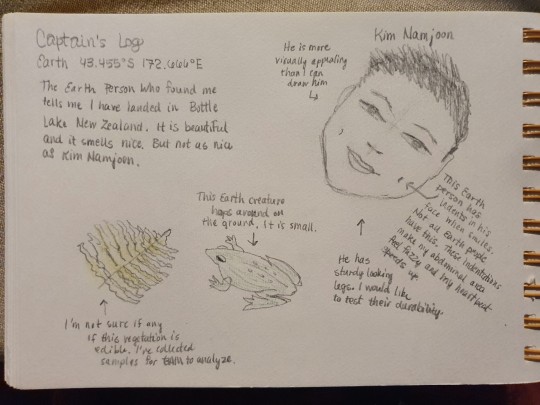 Captain's Log
Earth 43.455°S 172.666°E
The Earth Person who found me
tells me I have landed in Bottle
Lake New Zealand. It is beautiful
and it smells nice. But not as nice
as Kim Namjoon.
Kim Namjoon
He is more
visually appealing
than I can
draw him
This Earth
person has
indents in his
face when smiles.
Not all Earth people
have this. These indentations
make my abdominal area
feel fuzzy and my heartbeat
speeds up.
This Earth creature
hops around on
the ground. It is small.
He has
sturdy looking
legs. I would like
to test their durability.
I'm not sure if any
if this vegetation is
edible. I've collected
samples for to analyze.